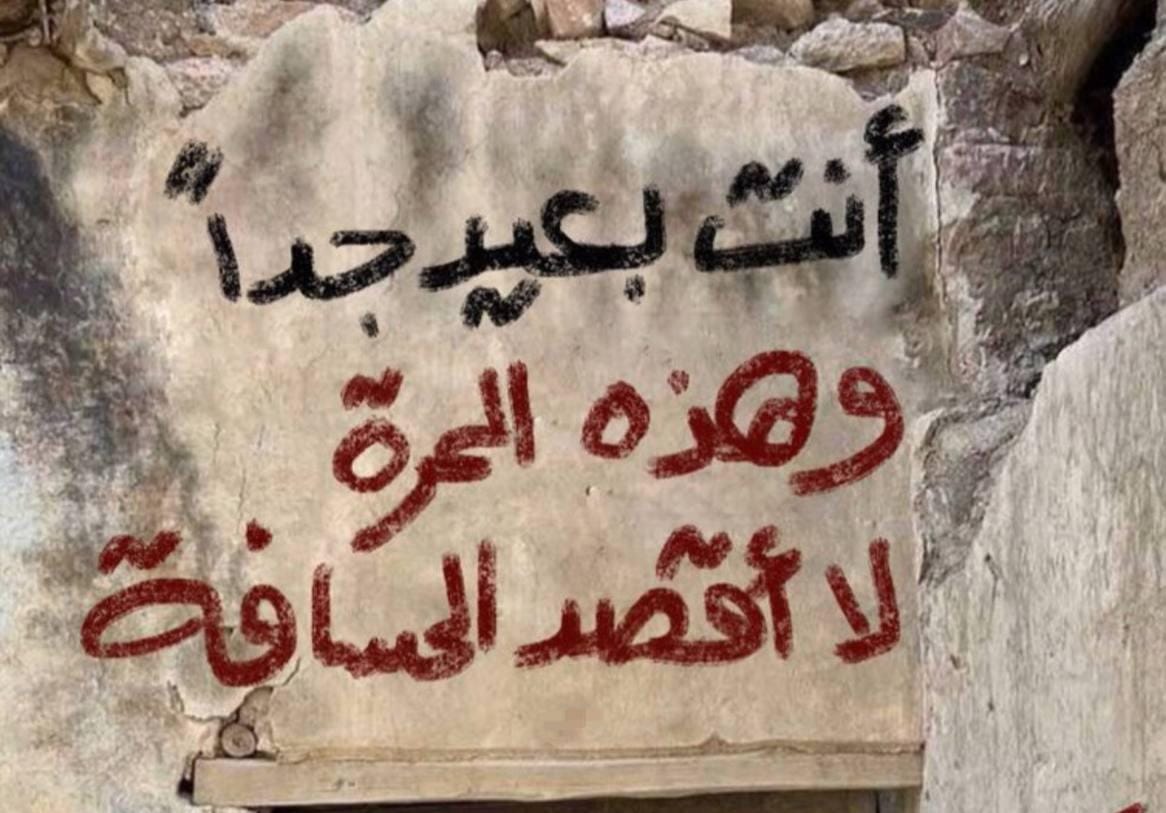 أنت بعيد جداً
وهذه المرة
لا أقصد المسافة